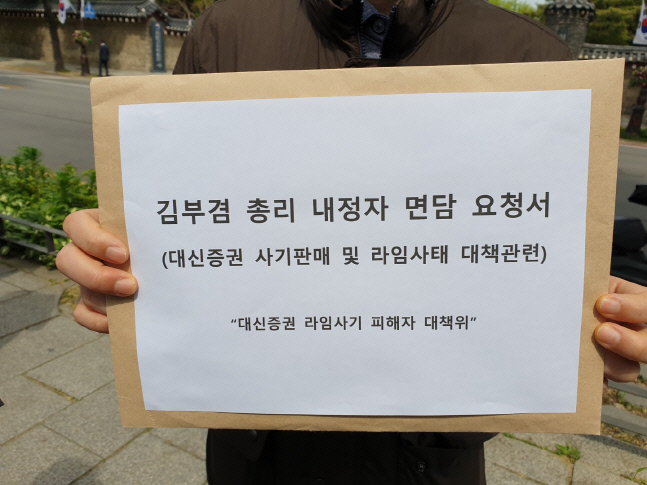 김부겸 총리 내정자 면담 요청서
(대신증권 사기판매 및 라임사태 대책관련)
“대신증권 라임사기 피해자 대책위”